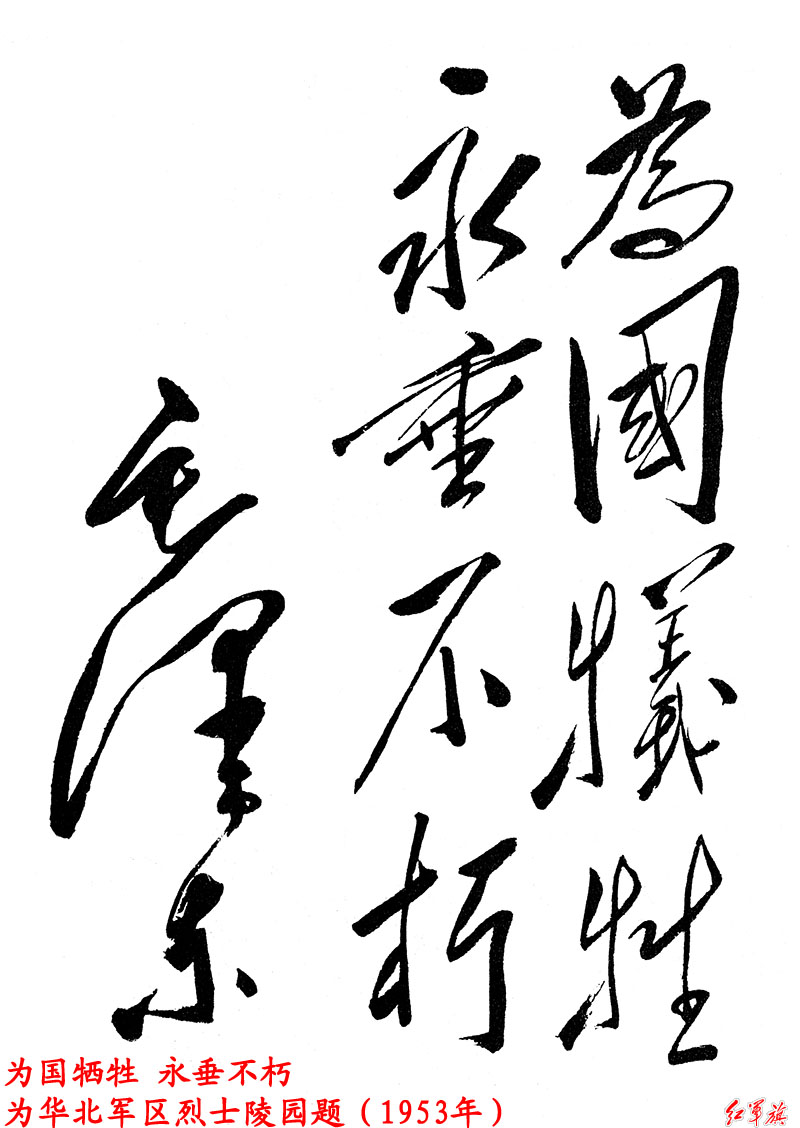 為國犧牲
永垂不朽
毛澤东
为国牺牲 永垂不朽
为华北军区烈士陵园题（1953年）
红军旗